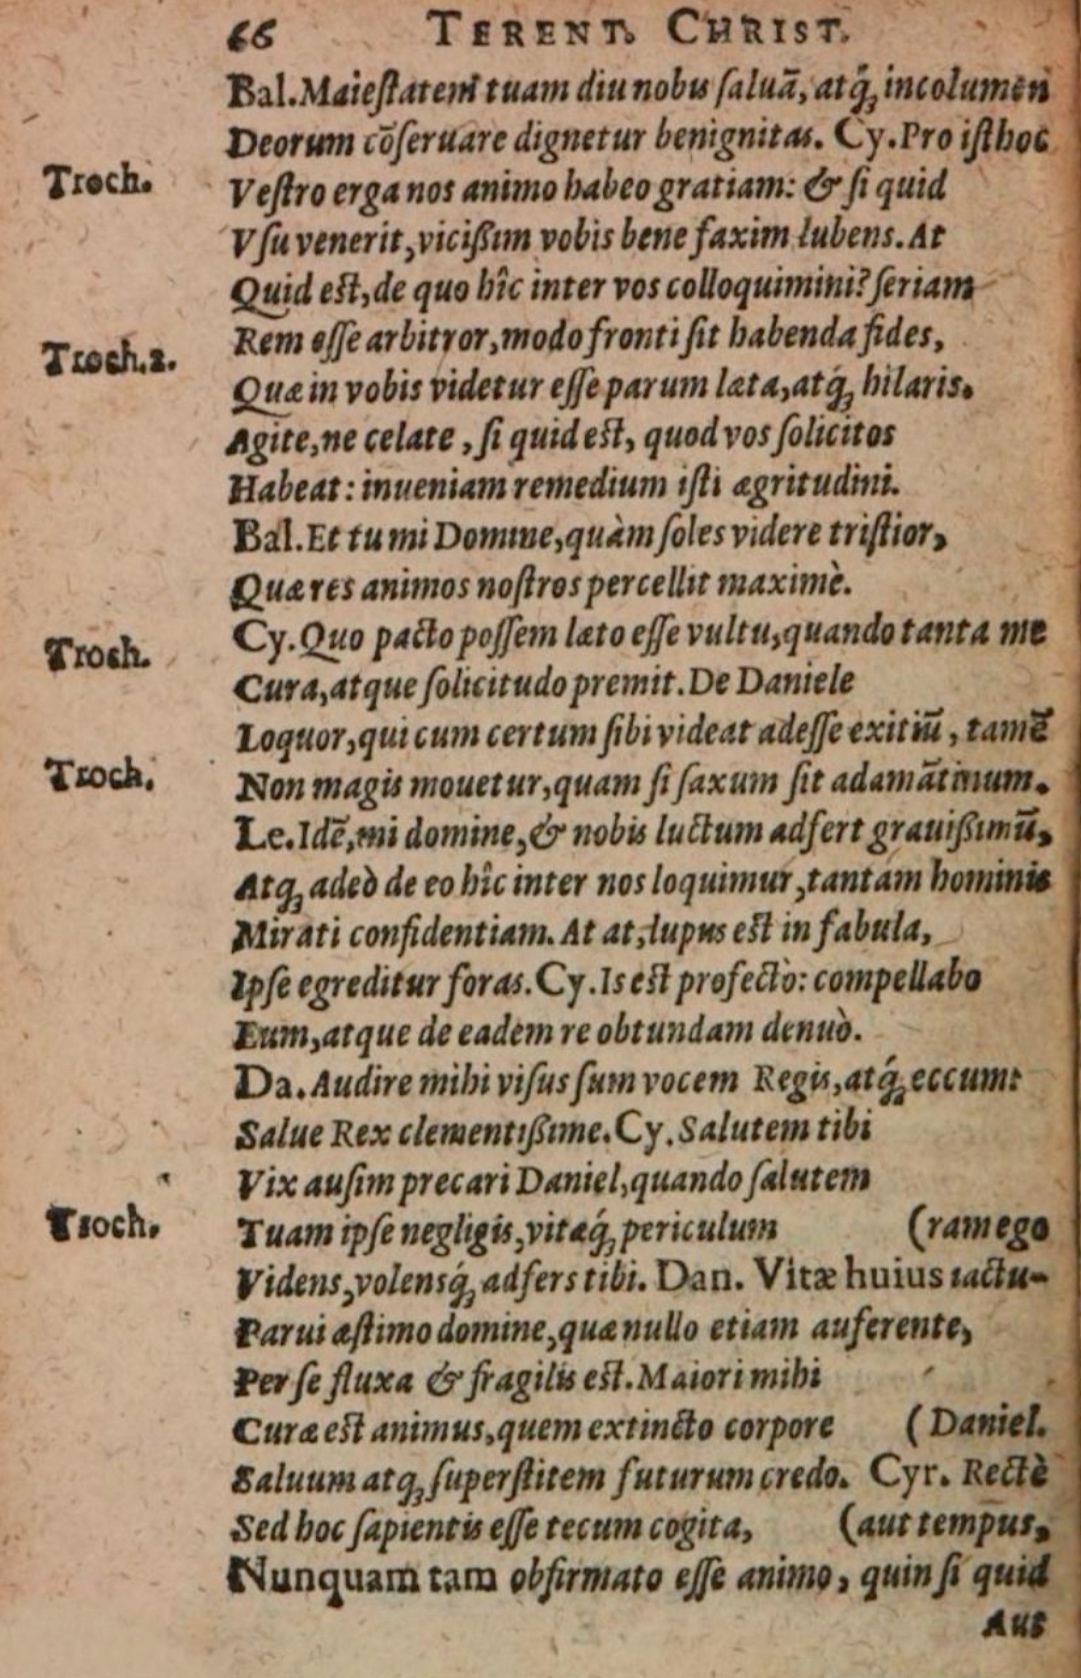 66 TERENT. CHRIST.
Bal. Maiestatem tuam diu nobis saluā, atq́; incolumen
Deorum cōseruare dignetur benignitas. Cy. Pro isthoc
Troch. Vestro erga nos animo habeo gratiam: & si quid
Vsu venerit, vicißim vobis bene faxim lubens. At
Quid est, de quo hîc inter vos colloquimini? seriam
Troch.2. Rem esse arbitror, modo fronti sit habenda fides,
Quæ in vobis videtur esse parum læta, atq́; hilaris.
Agite, ne celate, si quid est, quod vos solicitos
Habeat: inueniam remedium isti ægritudini.
Bal. Et tu mi Domine, quàm soles videre tristior,
Quæ res animos nostros percellit maximè.
Troch. Cy. Quo pacto possem læto esse vultu, quando tanta me
Cura, atque solicitudo premit. De Daniele
Loquor, qui cum certum sibi videat adesse exitiū, tamē
Troch. Non magis mouetur, quam si saxum sit adamātinum.
Le. Idē, mi domine, & nobis luctum adfert grauißimū,
Atq; adeò de eo hîc inter nos loquimur, tantam hominis
Mirati confidentiam. At at, lupus est in fabula,
Ipse egreditur foras. Cy. Is est profectò: compellabo
Eum, atque de eadem re obtundam denuò.
Da. Audire mihi visus sum vocem Regis, atq́; eccum:
Salue Rex clementißime. Cy. Salutem tibi
Vix ausim precari Daniel, quando salutem
Troch. Tuam ipse negligis, vitæq́; periculum (ram ego
Videns, volensq́; adfers tibi. Dan. Vitæ huius iactu-
Parui æstimo domine, quæ nullo etiam auferente,
Per se fluxa & fragilis est. Maiori mihi
Curæ est animus, quem extincto corpore (Daniel.
Saluum atq; superstitem futurum credo. Cyr. Rectè
Sed hoc sapientis esse tecum cogita, (aut tempus,
Nunquam tam obfirmato esse animo, quin si quid
Aut